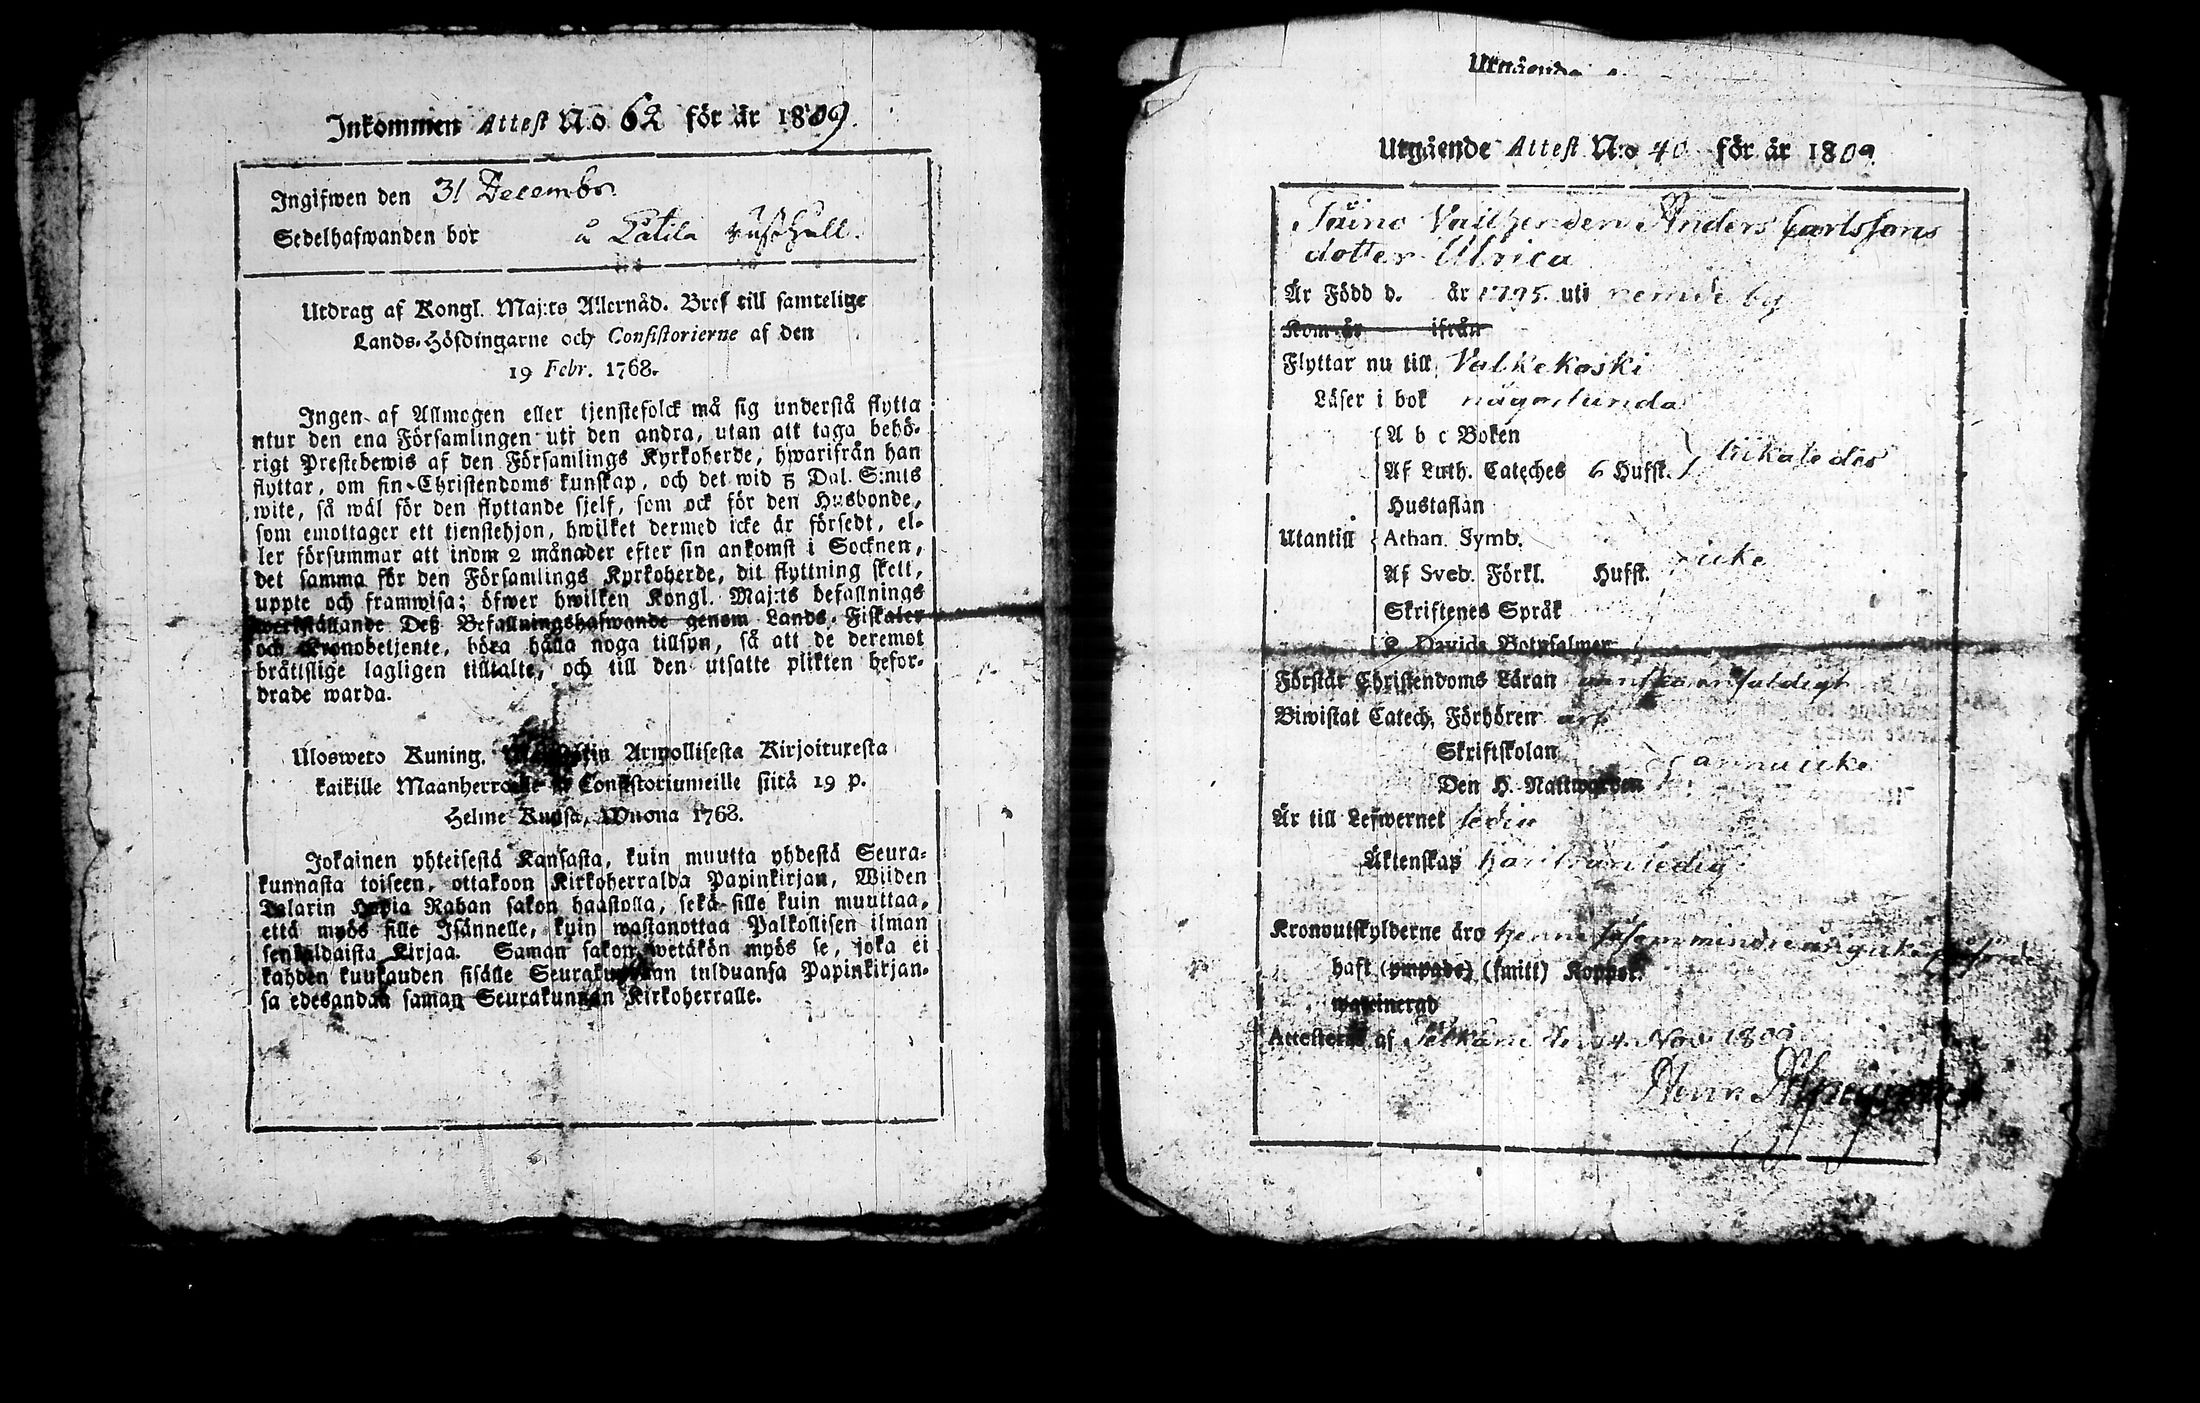 Inkommen Attest No 62 för år 1809.
Ingifwen den 31 Decembr
Sedelhafwanden bor å Latila
Utdrag af Kongl. Maj:ts Allernåd. Bref till samtelige
Lands-Höfdingarne och Consistorierne af den
19 Febr. 1768.
Ingen af Allmogen eller tjenstefolck må sig understå flytta
utur den ena Församlingen uti den andra, utan att taga behö-
rigt Prestebewis af den Församlings Kyrkoherde, hwarifrån han
flyttar, om sin Christendoms kunskap, och det wid 5 Dal. S:mts
wite, så wäl för den flyttande sjelf, som ock för den Husbonde,
som emottager ett tjenstehjon, hwilket dermed icke är försedt, el-
ler försummar att inom 2 månader efter sin ankomst i Socknen,
det samma för den Församlings Kyrkoherde, dit flyttning skett,
uppte och framwisa; öfwer hwilken Kongl. Maj:ts befallnings
werkställande Deß Befallningshafwande genom Lands-Fiskaler
och Kronobetjente, böra hålla noga tillsyn, så att de deremot
brättslige lagligen tilltalte, och till den utsatte plikten befor-
drade warda.
Ulosweto Kuning. Armollisesta Kirjoituxesta
kaikille Maanherroille ja Consistoriumeille siitä 19 p.
Helme Kuusa, Wuona 1768.
Jokainen yhteisestä Kansasta, kuin muutta yhdestä Seura-
kunnasta toiseen, ottakoon Kirkoherralda Papinkirjan, Wiiden
Talarin Hopia Rahan sakon haastolla, sekä sille kuin muuttaa,
että myös sille Isännelle, kuin wastanottaa Palkollisen ilman
senkaldaista Kirjaa. Saman sakon wetäkön myös se, joka ei
kahden kuukauden sisälle Seurakunnan tulduansa Papinkirjan-
sa edesandaa saman Seurakunnan Kirkoherralle.
Utgående
Utgående Attest N:o 40 för år 1809
Anders Carlssons
dotter Ulrica
Är Född d. år 1795 uti by
Kom år ifrån
Flyttar nu till Valkekoski
Läser i bok någorlunda
A b c Boken
Af Luth. Cateches 6 Hufst. likaledes
Hustaflan
Utantill Athan. Symb.
Af Sveb. Förkl. Hufst. icke
Skriftenes Språk
Davids Botpsalmer
Förstår Christendoms Läran
Biwistat Catech. Förhören
Skriftskolan
Den H. Nattwarden ännu icke
Är till Lefwernet
Äktenskap härifrån ledig
Kronoutskylderne äro
haft (ympade) (smitt) Koppor.
waccinerad
Attesteras af den 14 Nov. 1809
Henr.